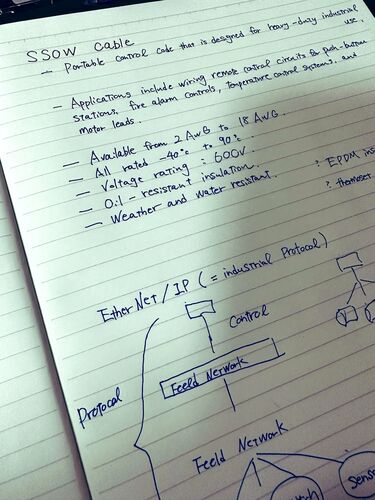 SSOW Cable
— Portable control code that is designed for heavy-duty industrial use.
— Applications include wiring remote control circuits for push-button
stations, fire alarm controls, temperature control systems, and
motor leads.
— Available from 2 AWG to 18 AWG.
— All rated -40°C to 90°C
— Voltage rating : 600V.
— Oil-resistant insulation.
— Weather and water resistant.
? EPDM ins
? thermoset
EtherNet/IP (= industrial Protocol)
Control
Feeld Network
Protocal
Feeld Network
Senso